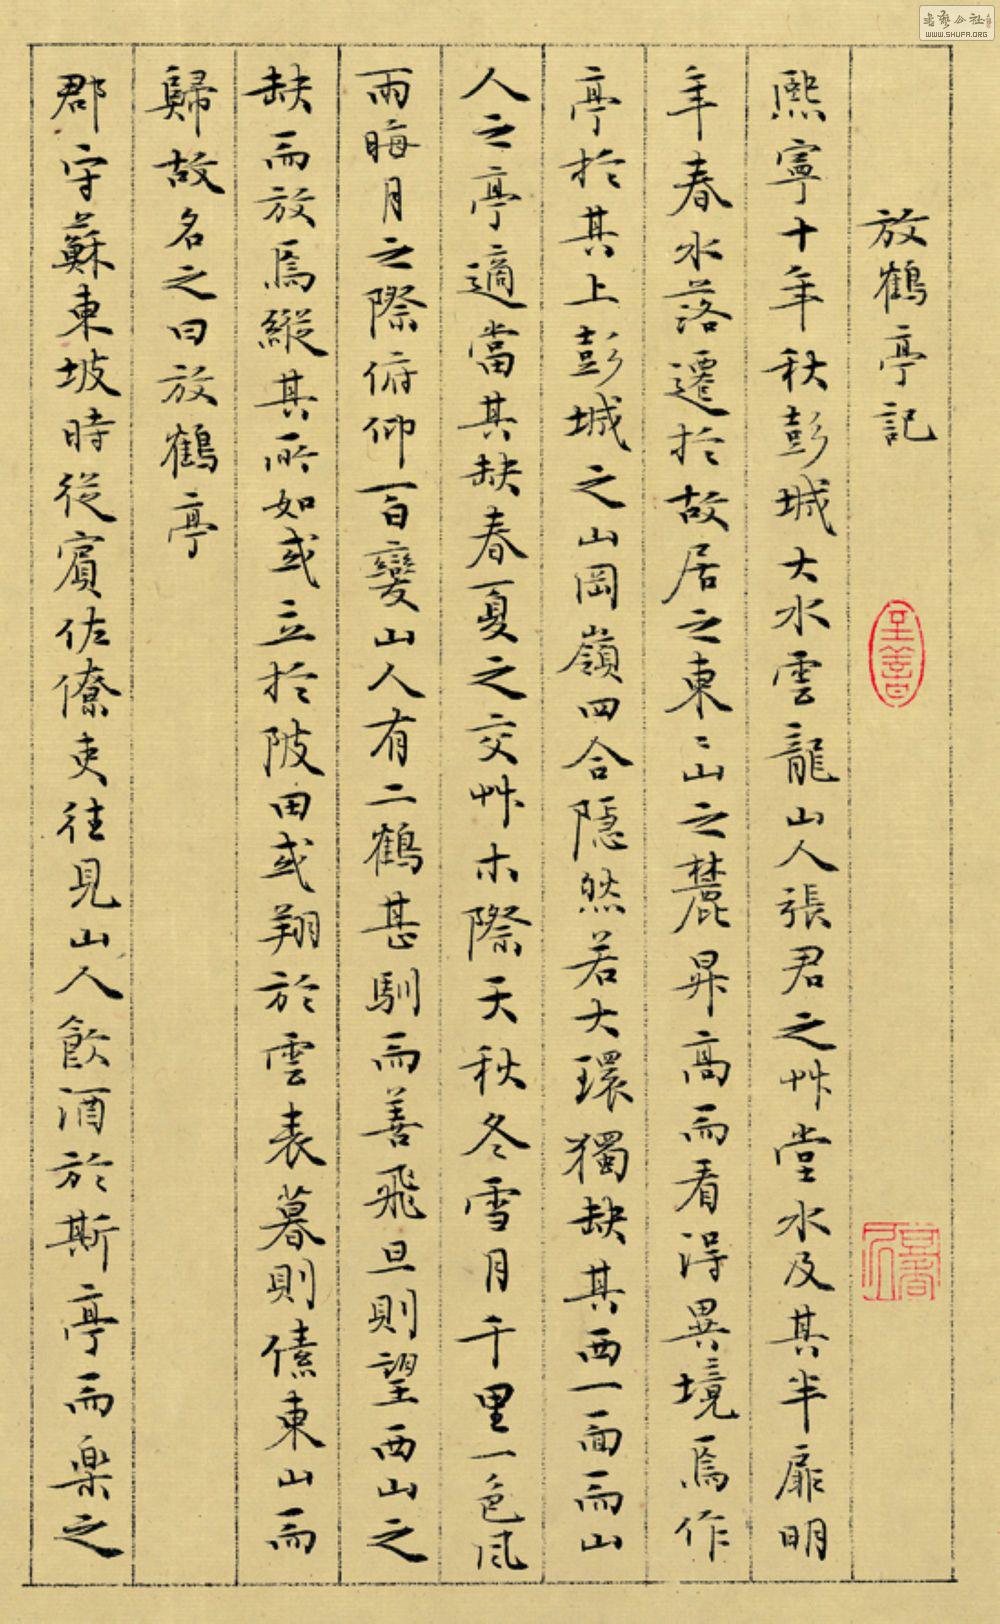 放鶴亭記
熙寧十年秋彭城大水雲龍山人張君之艸堂水及其半扉明
年春水落遷於故居之東〻山之麓昇高而看得異境焉作
亭於其上彭城之山岡嶺四合隱然若大環獨缺其西一面而山
人之亭適當其缺春夏之交艸木際天秋冬雪月千里一色風
雨晦月之際俯仰百變山人有二鶴甚馴而善飛旦則望西山之
缺而放焉縱其所如或立於陂田或翔於雲表暮則傃東山而
歸故名之曰放鶴亭
郡守蘇東坡時從賓佐僚吏往見山人飲酒於斯亭而樂之
至善
WWW.SHUFA.ORG